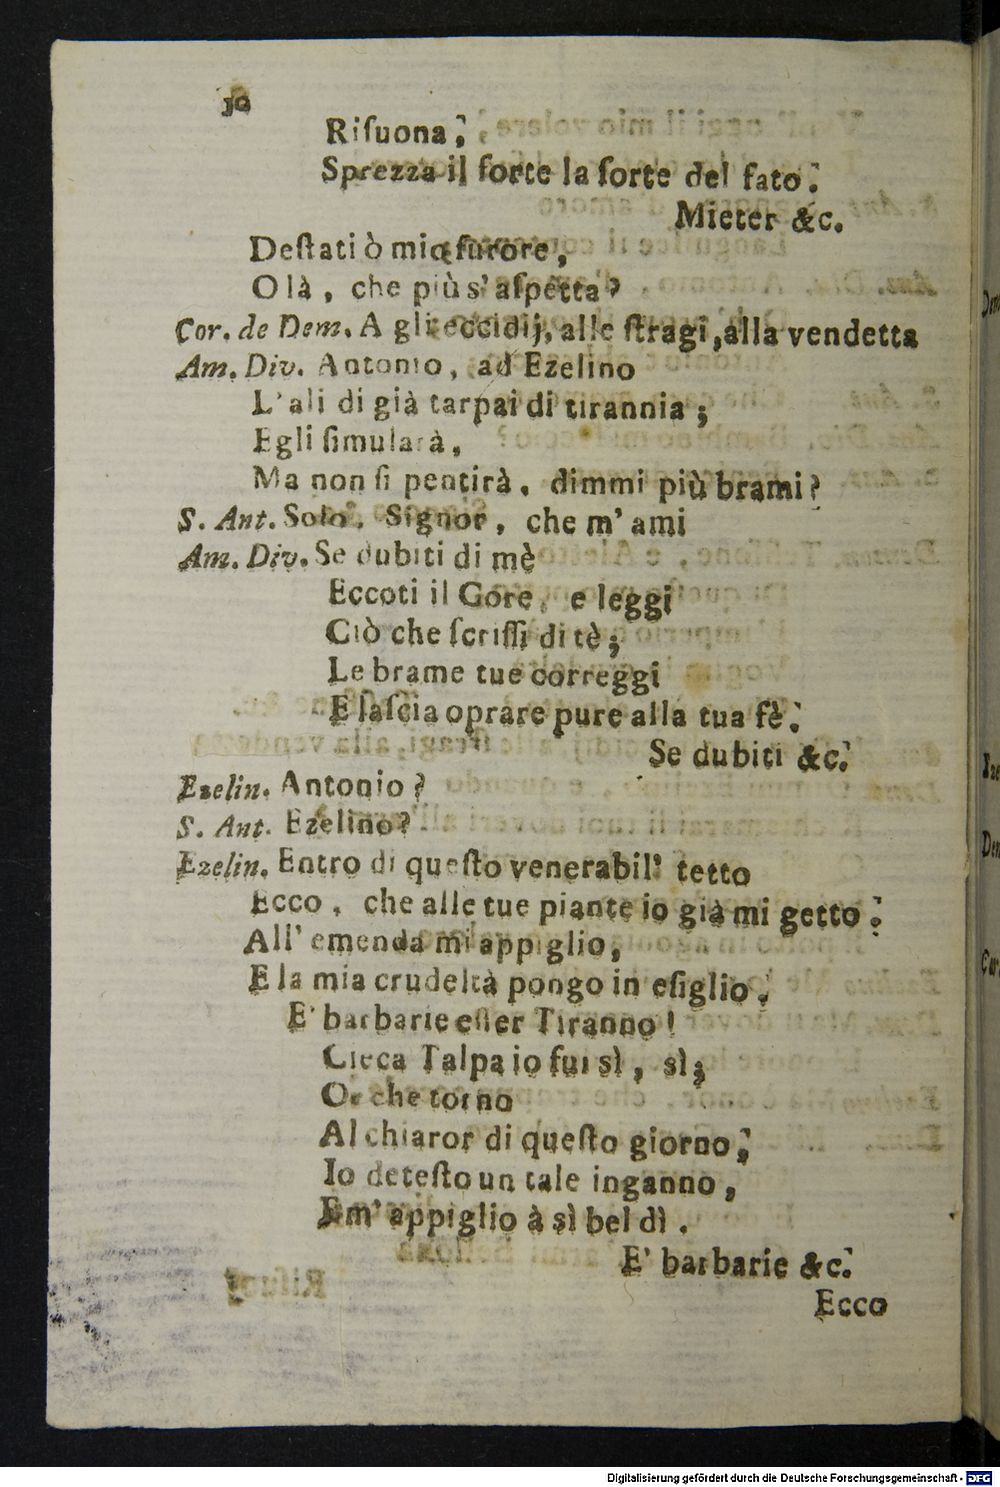 30
Riſuona;
Sprezza il forte la ſorte del fato.
Mieter &c.
Deſtati ò mio furore,
Olà, che più s'aſpetta?
Cor. de Dem. A gli eccidij, alle ſtragi, alla vendetta
Am. Div. Antonio, ad Ezelino
L'ali di già tarpai di tirannia;
Egli ſimularà,
Ma non ſi pentirà, dimmi più brami?
S. Ant. Solo, Signor, che m'ami
Am. Div. Se dubiti di mè
Eccoti il Core, e leggi
Ciò che ſcriſſi di tè;
Le brame tue correggi
E laſcia oprare pure alla tua fè.
Se dubiti &c.
Ezelin. Antonio?
S. Ant. Ezelino?
Ezelin. Entro di queſto venerabil' tetto
Ecco, che alle tue piante io già mi getto.
All' emenda mi appiglio,
E la mia crudeltà pongo in eſiglio.
E' barbarie eſſer Tiranno!
Cieca Talpa io fui sì, sì;
Or che torno
Al chiaror di queſto giorno;
Io deteſto un tale inganno,
E m' appiglio à sì bel dì.
E' barbarie &c.
Ecco
Digitalisierung gefördert durch die Deutsche Forschungsgemeinschaft - DFG